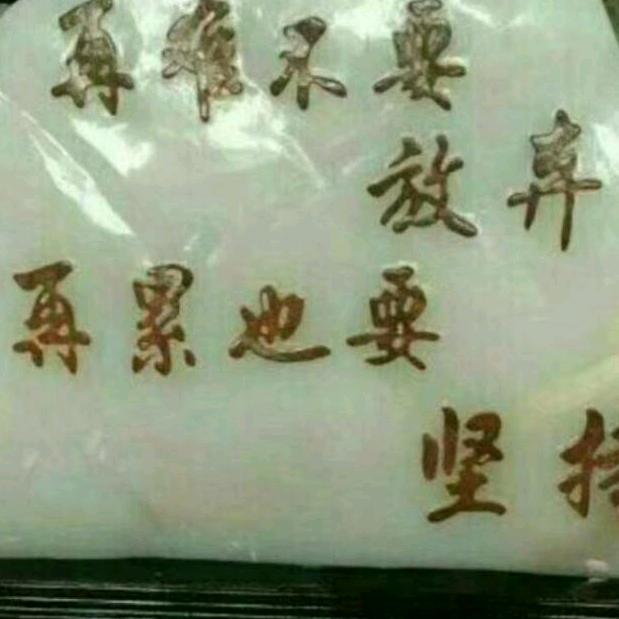 再难不要
放弃
再累也要
坚持